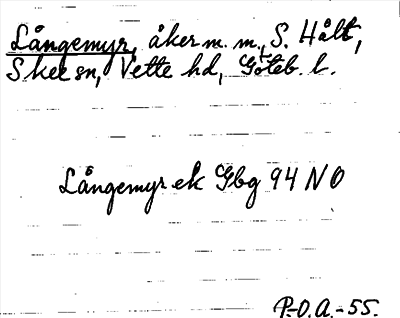 Långemyr, åker m. m., S. Hålt,
Skee sn, Vette hd, Göteb. l.
Långemyr ek Gbg 94 NO
P.-O.A.-55.